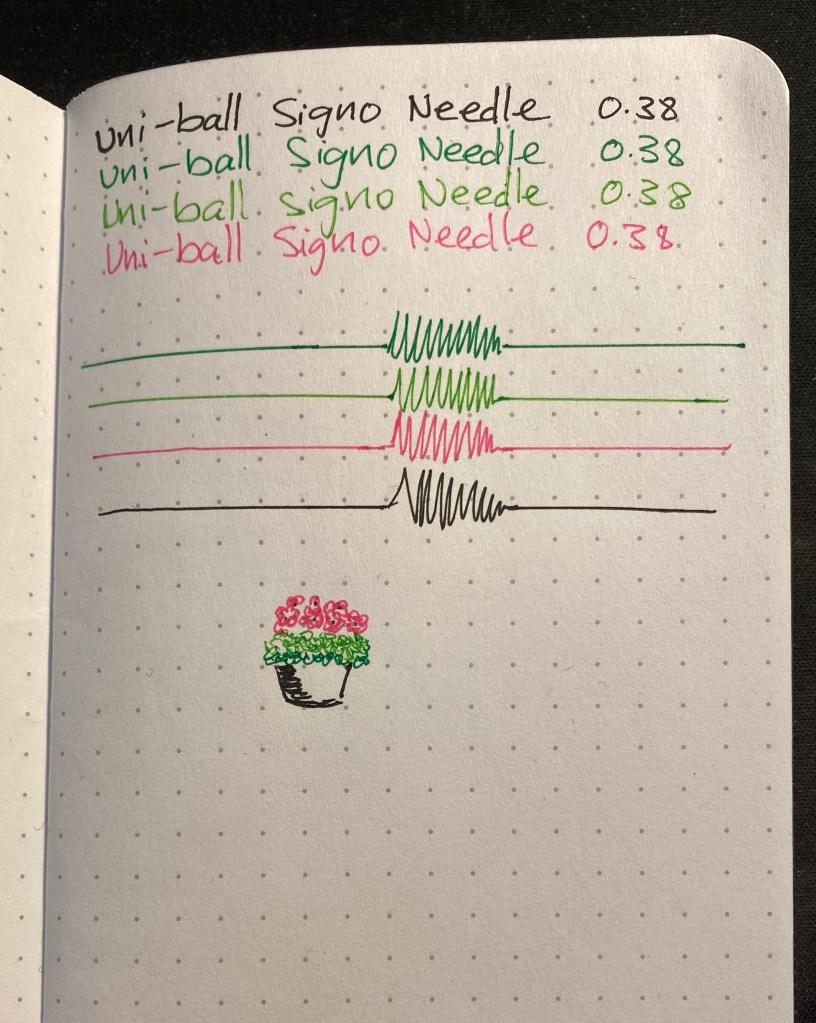 uni-ball Signo Needle 0.38
uni-ball Signo Needle 0.38
uni-ball Signo Needle 0.38
Uni-ball Signo Needle 0.38